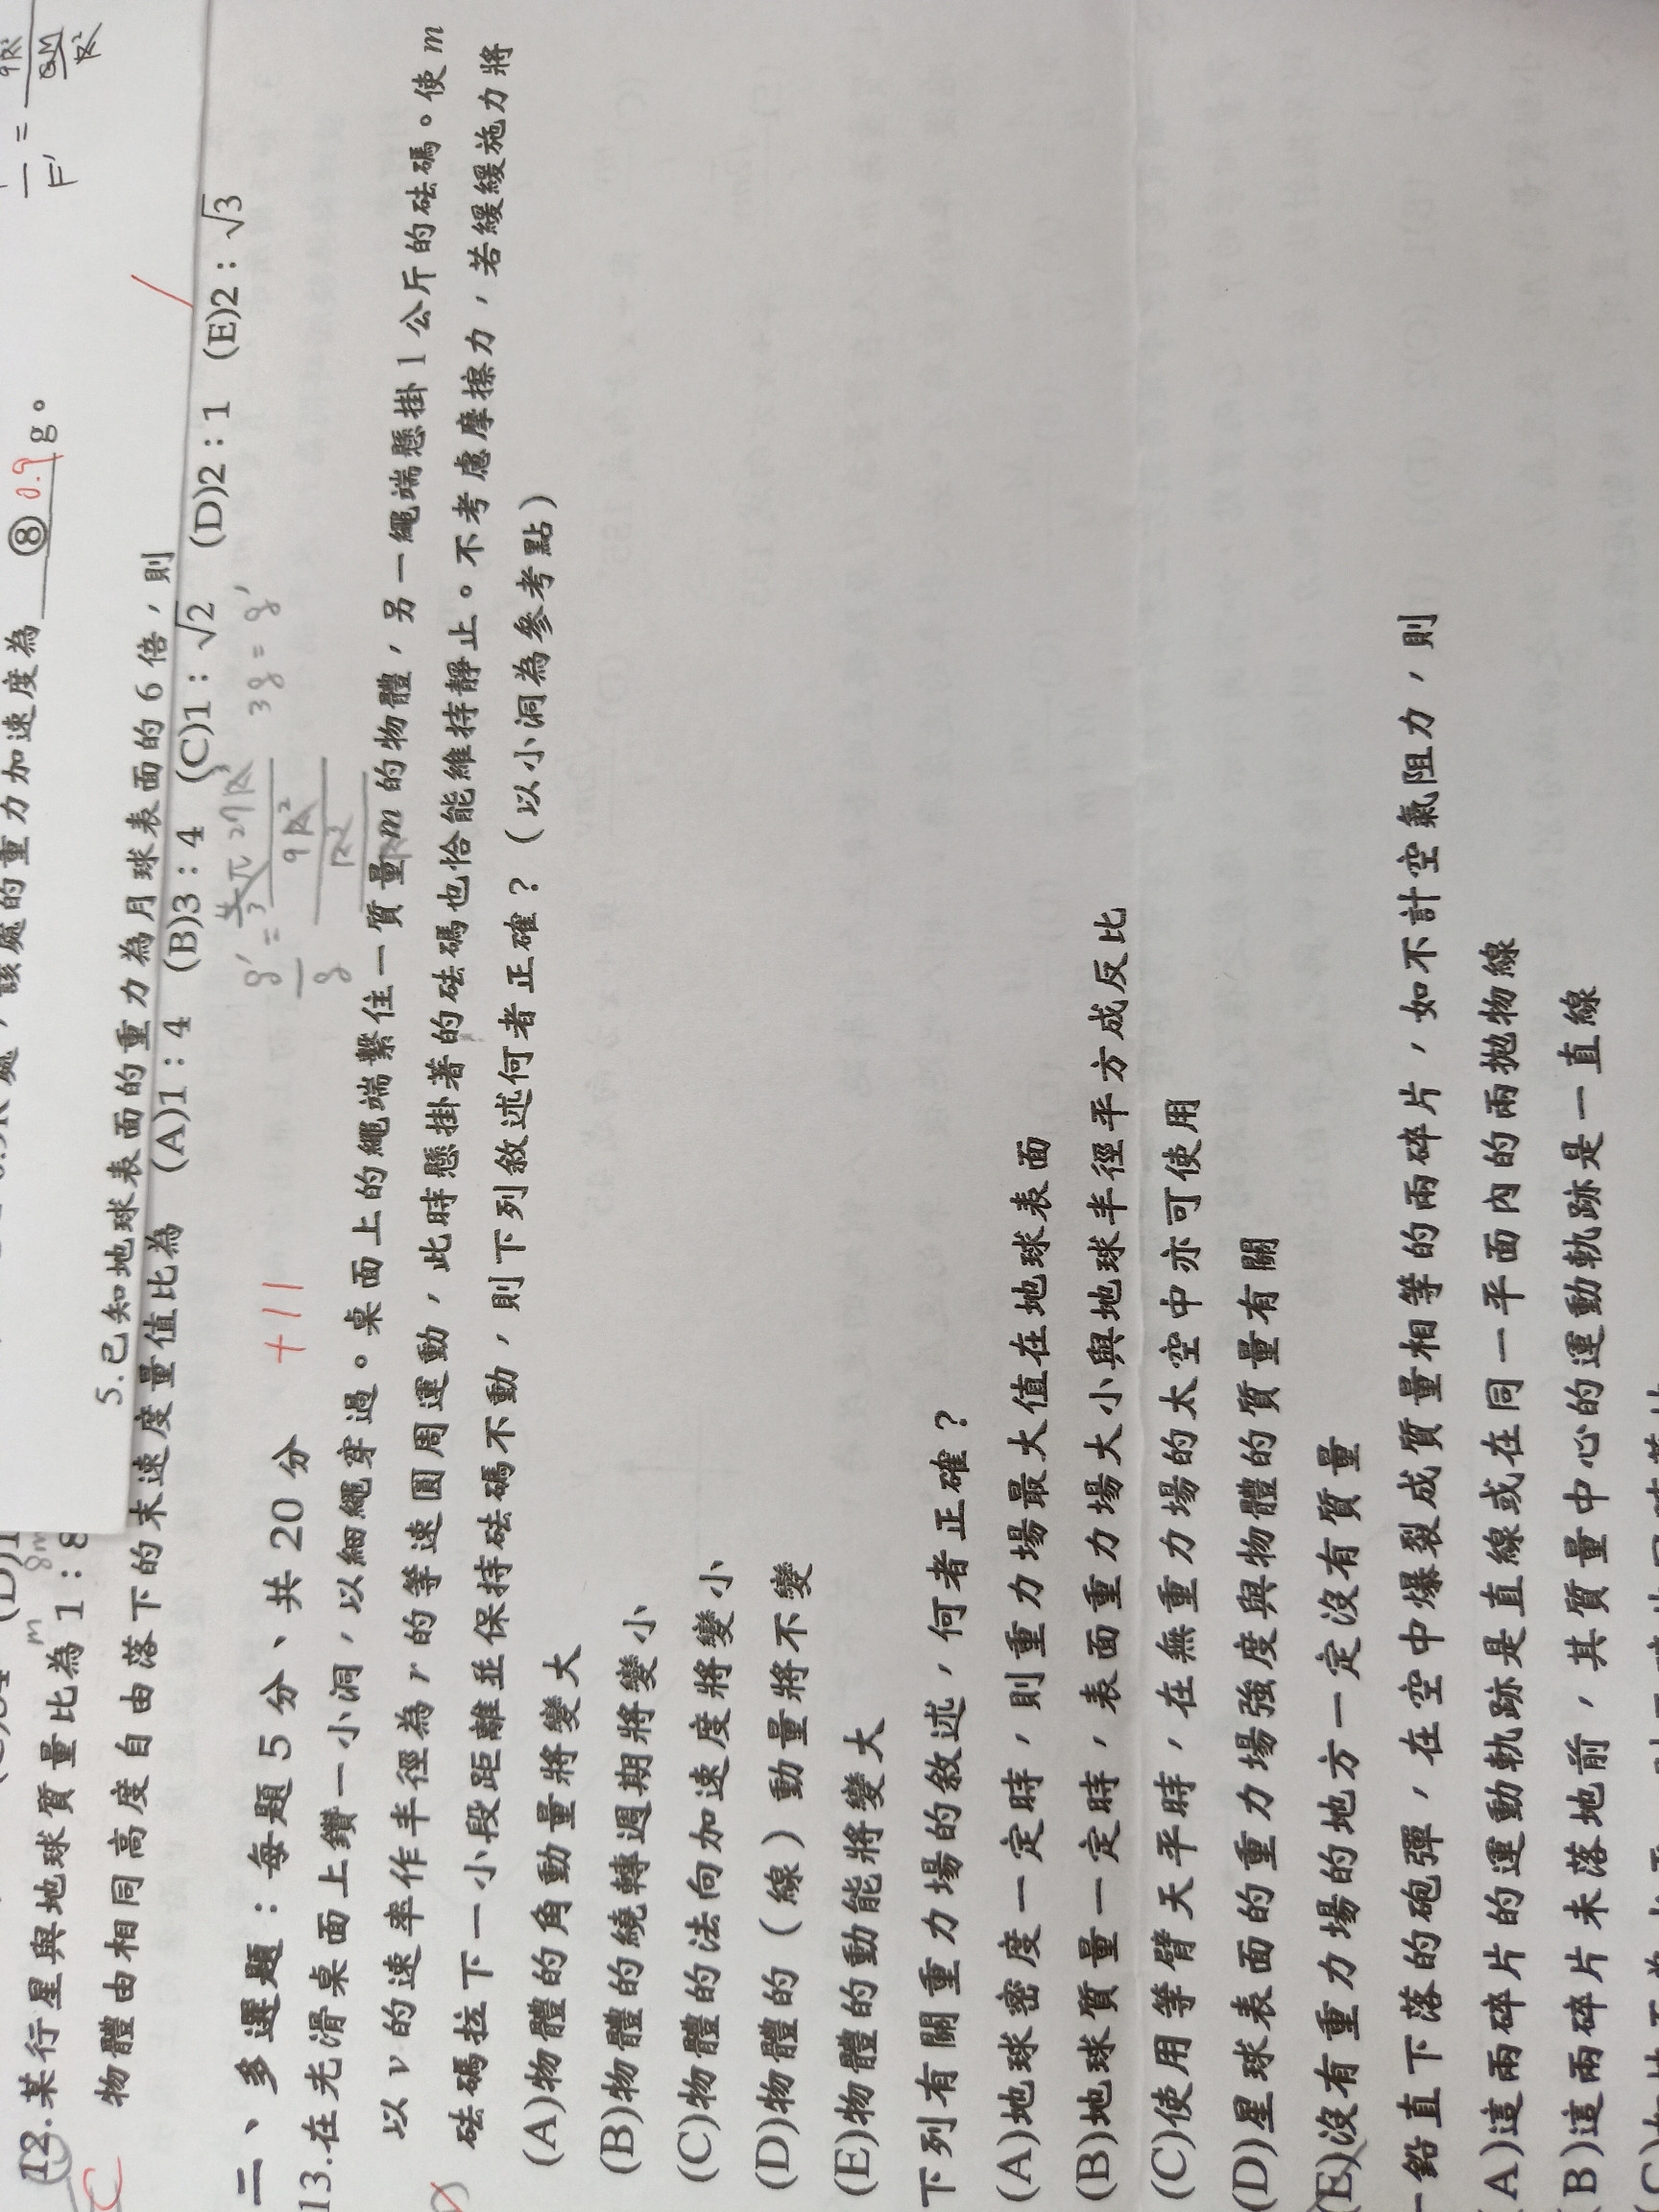 該處的重力加速度為 ⑧ 0.9 g。
F' = 9R² GM R²
5.已知地球表面的重力為月球表面的 6 倍,則
12.某行星與地球質量比為 1:8
m 8m
物體由相同高度自由落下的末速度量值比為 (A)1:4 (B)3:4 (C)1:√2 (D)2:1 (E)2:√3
C
3g = g'
二、多選題:每題 5 分、共 20 分 +11
13.在光滑桌面上鑽一小洞,以細繩穿過。桌面上的繩端繫住一質量 m 的物體,另一繩端懸掛 1 公斤的砝碼。使 m
以 v 的速率作半徑為 r 的等速圓周運動,此時懸掛著的砝碼也恰能維持靜止。不考慮摩擦力,若緩緩施力將
砝碼拉下一小段距離並保持砝碼不動,則下列敘述何者正確?(以小洞為參考點)
(A)物體的角動量將變大
(B)物體的繞轉週期將變小
(C)物體的法向加速度將變小
(D)物體的(線)動量將不變
(E)物體的動能將變大
下列有關重力場的敘述,何者正確?
(A)地球密度一定時,則重力場最大值在地球表面
(B)地球質量一定時,表面重力場大小與地球半徑平方成反比
(C)使用等臂天平時,在無重力場的太空中亦可使用
(D)星球表面的重力場強度與物體的質量有關
(E)沒有重力場的地方一定沒有質量
一鉛直下落的砲彈,在空中爆裂成質量相等的兩碎片,如不計空氣阻力,則
(A)這兩碎片的運動軌跡是直線或在同一平面內的兩拋物線
(B)這兩碎片未落地前,其質量中心的運動軌跡是一直線